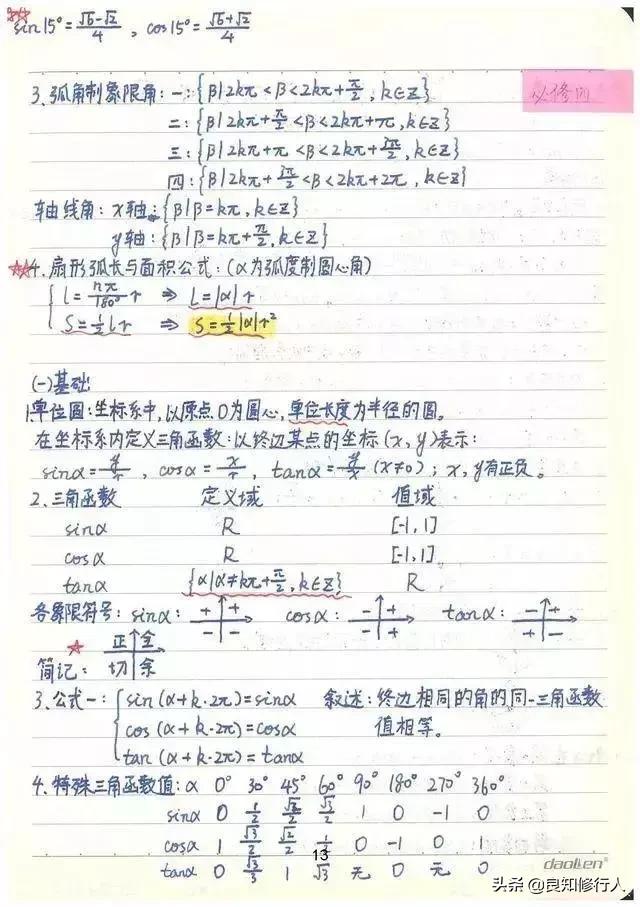 sin15°=(√6-√2)/4 , cos15°=(√6+√2)/4
3. 弧角制象限角: 一:{β|2kπ<β<2kπ+π/2, k∈Z}
必修四
二:{β|2kπ+π/2<β<2kπ+π, k∈Z}
三:{β|2kπ+π<β<2kπ+3π/2, k∈Z}
四:{β|2kπ+3π/2<β<2kπ+2π, k∈Z}
轴线角: x轴:{β|β=kπ, k∈Z}
y轴:{β|β=kπ+π/2, k∈Z}
4. 扇形弧长与面积公式:(α为弧度制圆心角)
l=nπ/180° r ⇒ L=|α|r
S=1/2 lr ⇒ S=1/2|α|r²
(一)基础
1.单位圆:坐标系中,以原点O为圆心,单位长度为半径的圆。
在坐标系内定义三角函数:以终边某点的坐标(x, y)表示:
sinα=y/r , cosα=x/r , tanα=y/x (x≠0); x, y有正负。
2. 三角函数 定义域 值域
sinα R [-1,1]
cosα R [-1,1]
tanα {α|α≠kπ+π/2, k∈Z} R
各象限符号: sinα: + + - - cosα: - + - + tanα: - + + -
正 全
简记: 切 余
3. 公式一: sin(α+k·2π)=sinα 叙述:终边相同的角的同一三角函数
cos(α+k·2π)=cosα 值相等。
tan(α+k·2π)=tanα
4. 特殊三角函数值: α 0° 30° 45° 60° 90° 180° 270° 360°
sinα 0 1/2 √2/2 √3/2 1 0 -1 0
cosα 1 √3/2 √2/2 1/2 0 -1 0 1
13
tanα 0 √3/3 1 √3 无 0 无 0
daolien
头条 @良知修行人